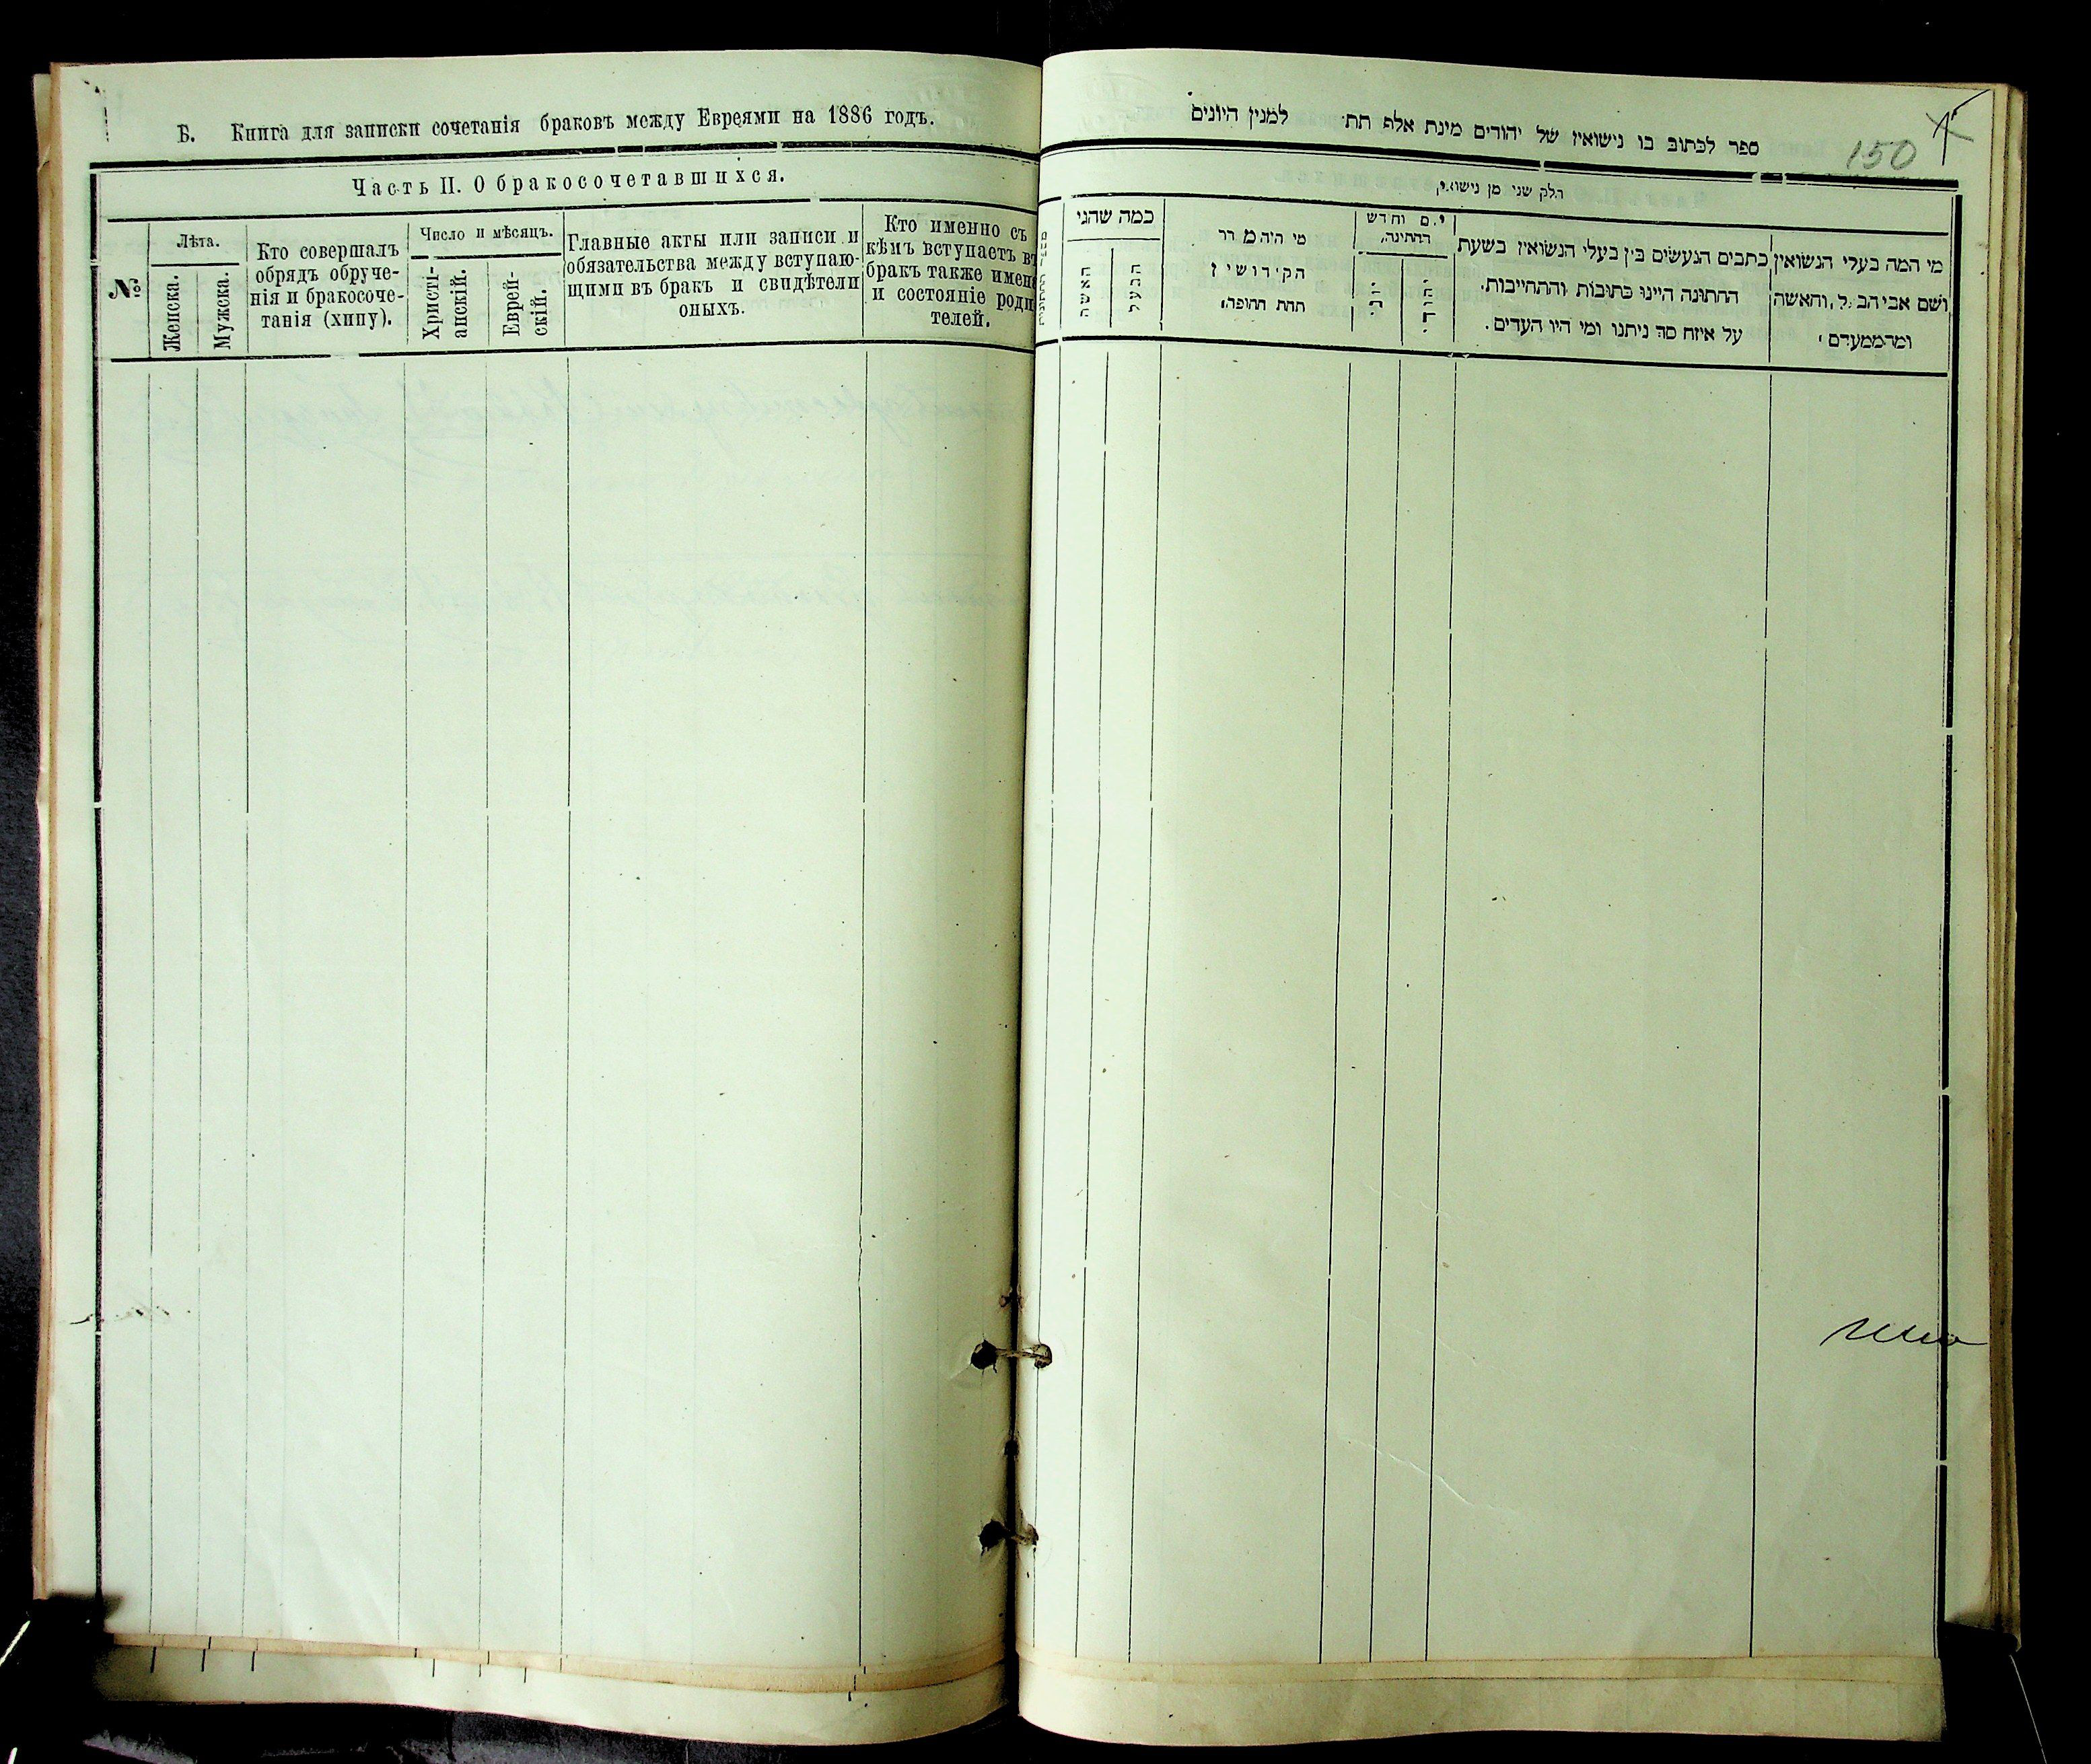 Б. Книга для записки сочетанія браковъ между Евреями на 1886 годъ.
Часть II. О бракосочетавшихся.
№
Лѣта.
Женска.
Мужска.
Кто совершалъ
обрядъ обруче-
нія и бракосоче-
танія (хипу).
Число и мѣсяцъ.
Христі-
анскій.
Еврей-
скій.
Главные акты или записи и
обязательства между вступаю-
щими въ бракъ и свидѣтели
оныхъ.
Кто именно съ
кѣмъ вступаетъ въ
бракъ также имена
и состояніе роди
телей.
150
ספר לכתוב בו נישואין של יהודים מינת אלף תת׳ למנין היונים
חלק שני מן נישואין
מי המה בעלי הנשואין
ושם אביהב של והאשה
ומהממעדם
כתבים הנעשים בין בעלי הנשואין בשעת
החתונה היינו כתובות והתחייבות.
על איזח סך ניתנו ומי היו העדים.
יום וחדש
החתונה
יהודי
יוני
מי היה מסדר
הקידושין
תחת החופה
כמה שהגי
הבעל
האשה